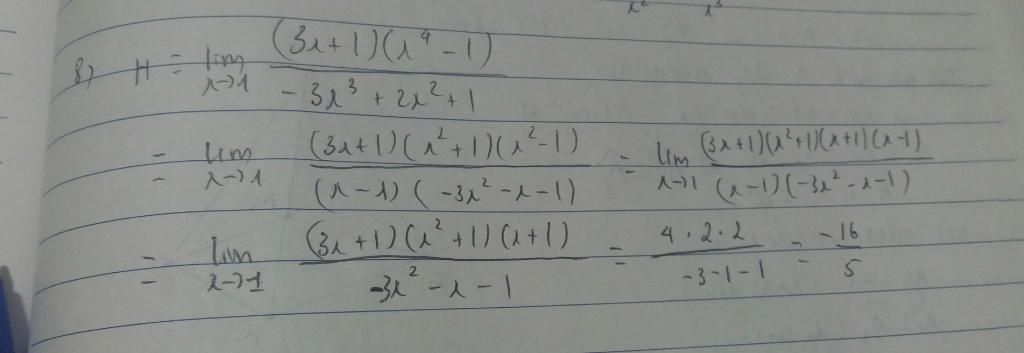 8) H = lim x→1 (3x+1)(x^4 - 1) / (-3x^3 + 2x^2 + 1)
= lim x→1 (3x+1)(x^2+1)(x^2-1) / (x-1)(-3x^2-x-1) = lim x→1 (3x+1)(x^2+1)(x+1)(x-1) / (x-1)(-3x^2-x-1)
= lim x→1 (3x+1)(x^2+1)(x+1) / (-3x^2-x-1) = 4·2·2 / (-3-1-1) = -16/5